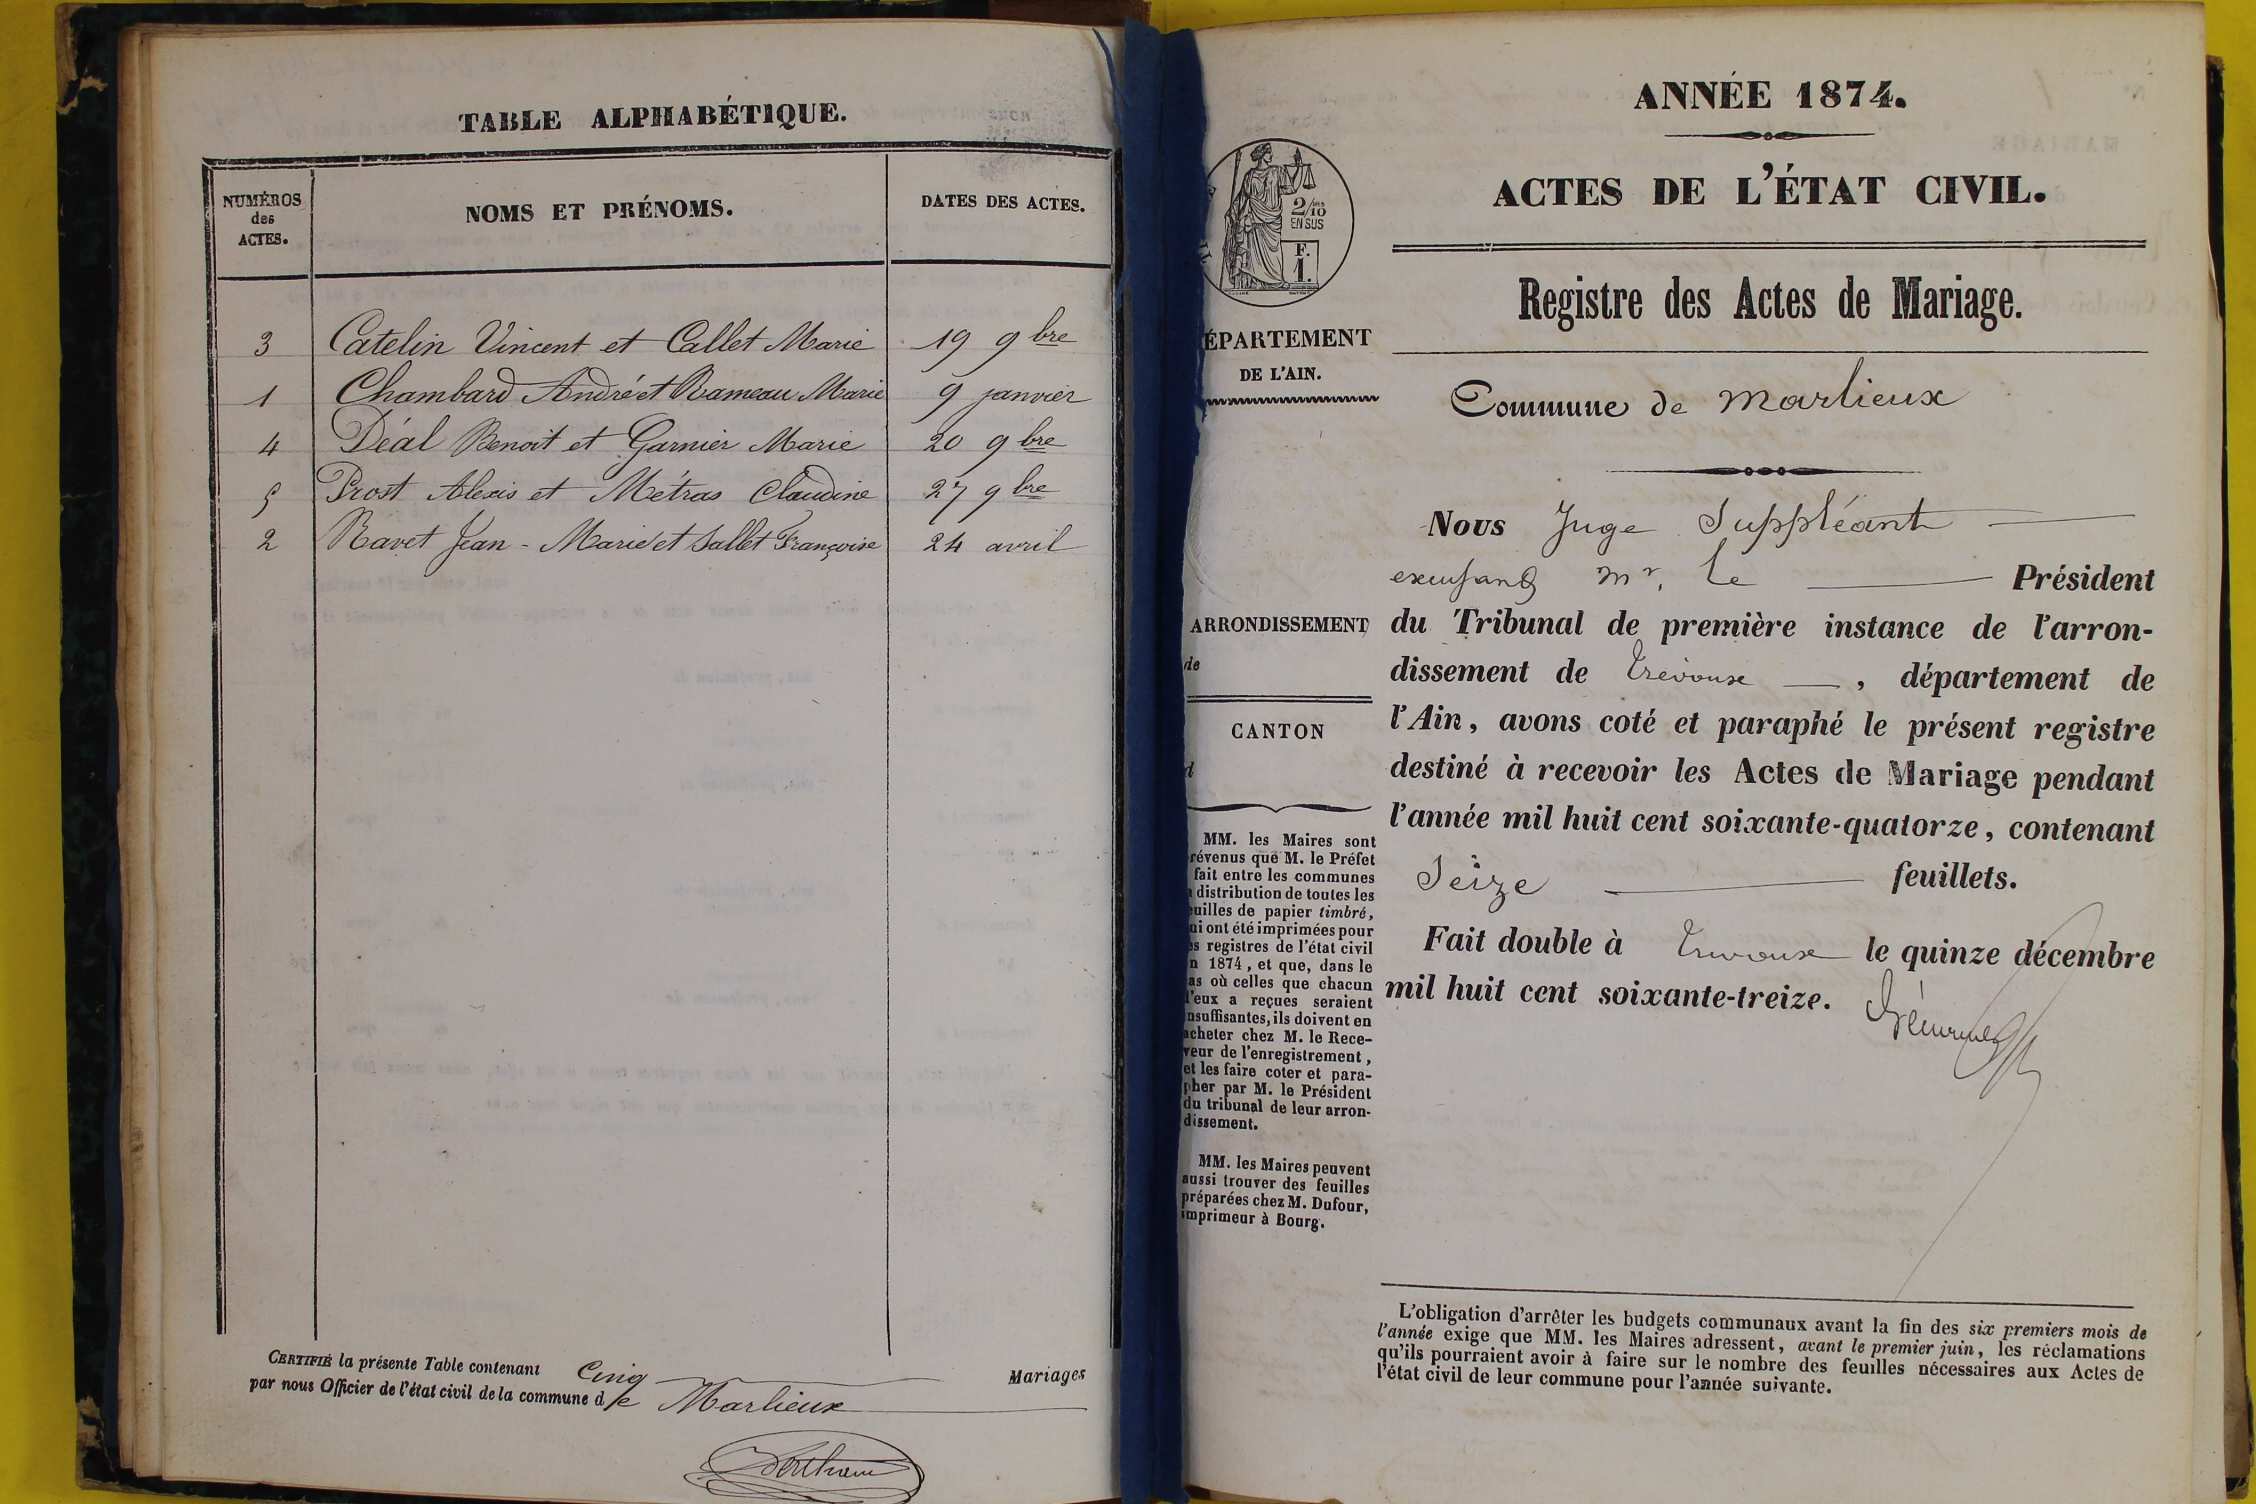 TABLE ALPHABÉTIQUE.
NUMÉROS
des
ACTES.
NOMS ET PRÉNOMS.
DATES DES ACTES.
3 Catelin Vincent et Callet Marie 19 9bre
1 Chambard André et Rameau Marie 9 janvier
4 Déal Benoit et Garnier Marie 20 9bre
5 Prost Alexis et Métras Claudine 27 9bre
2 Ravet Jean-Marie et Sallet Françoise 24 avril
CERTIFIÉ la présente Table contenant Cinq Mariages
par nous Officier de l'état civil de la commune de Marlieux
ANNÉE 1874.
ACTES DE L'ÉTAT CIVIL.
Registre des Actes de Mariage.
2/10
EN SUS
F.
1.
ÉPARTEMENT
DE L'AIN.
ARRONDISSEMENT
de
CANTON
d
MM. les Maires sont
révenus que M. le Préfet
fait entre les communes
a distribution de toutes les
euilles de papier timbré,
ui ont été imprimées pour
es registres de l'état civil
n 1874, et que, dans le
as où celles que chacun
d'eux a reçues seraient
insuffisantes, ils doivent en
acheter chez M. le Rece-
veur de l'enregistrement,
et les faire coter et para-
pher par M. le Président
du tribunal de leur arron-
dissement.
MM. les Maires peuvent
aussi trouver des feuilles
préparées chez M. Dufour,
imprimeur à Bourg.
Commune de Marlieux
Nous Juge Suppléant
Mr. le Président
du Tribunal de première instance de l'arron-
dissement de Trévoux, département de
l'Ain, avons coté et paraphé le présent registre
destiné à recevoir les Actes de Mariage pendant
l'année mil huit cent soixante-quatorze, contenant
Seize feuillets.
Fait double à Trévoux le quinze décembre
mil huit cent soixante-treize.
L'obligation d'arrêter les budgets communaux avant la fin des six premiers mois de
l'année exige que MM. les Maires adressent, avant le premier juin, les réclamations
qu'ils pourraient avoir à faire sur le nombre des feuilles nécessaires aux Actes de
l'état civil de leur commune pour l'année suivante.